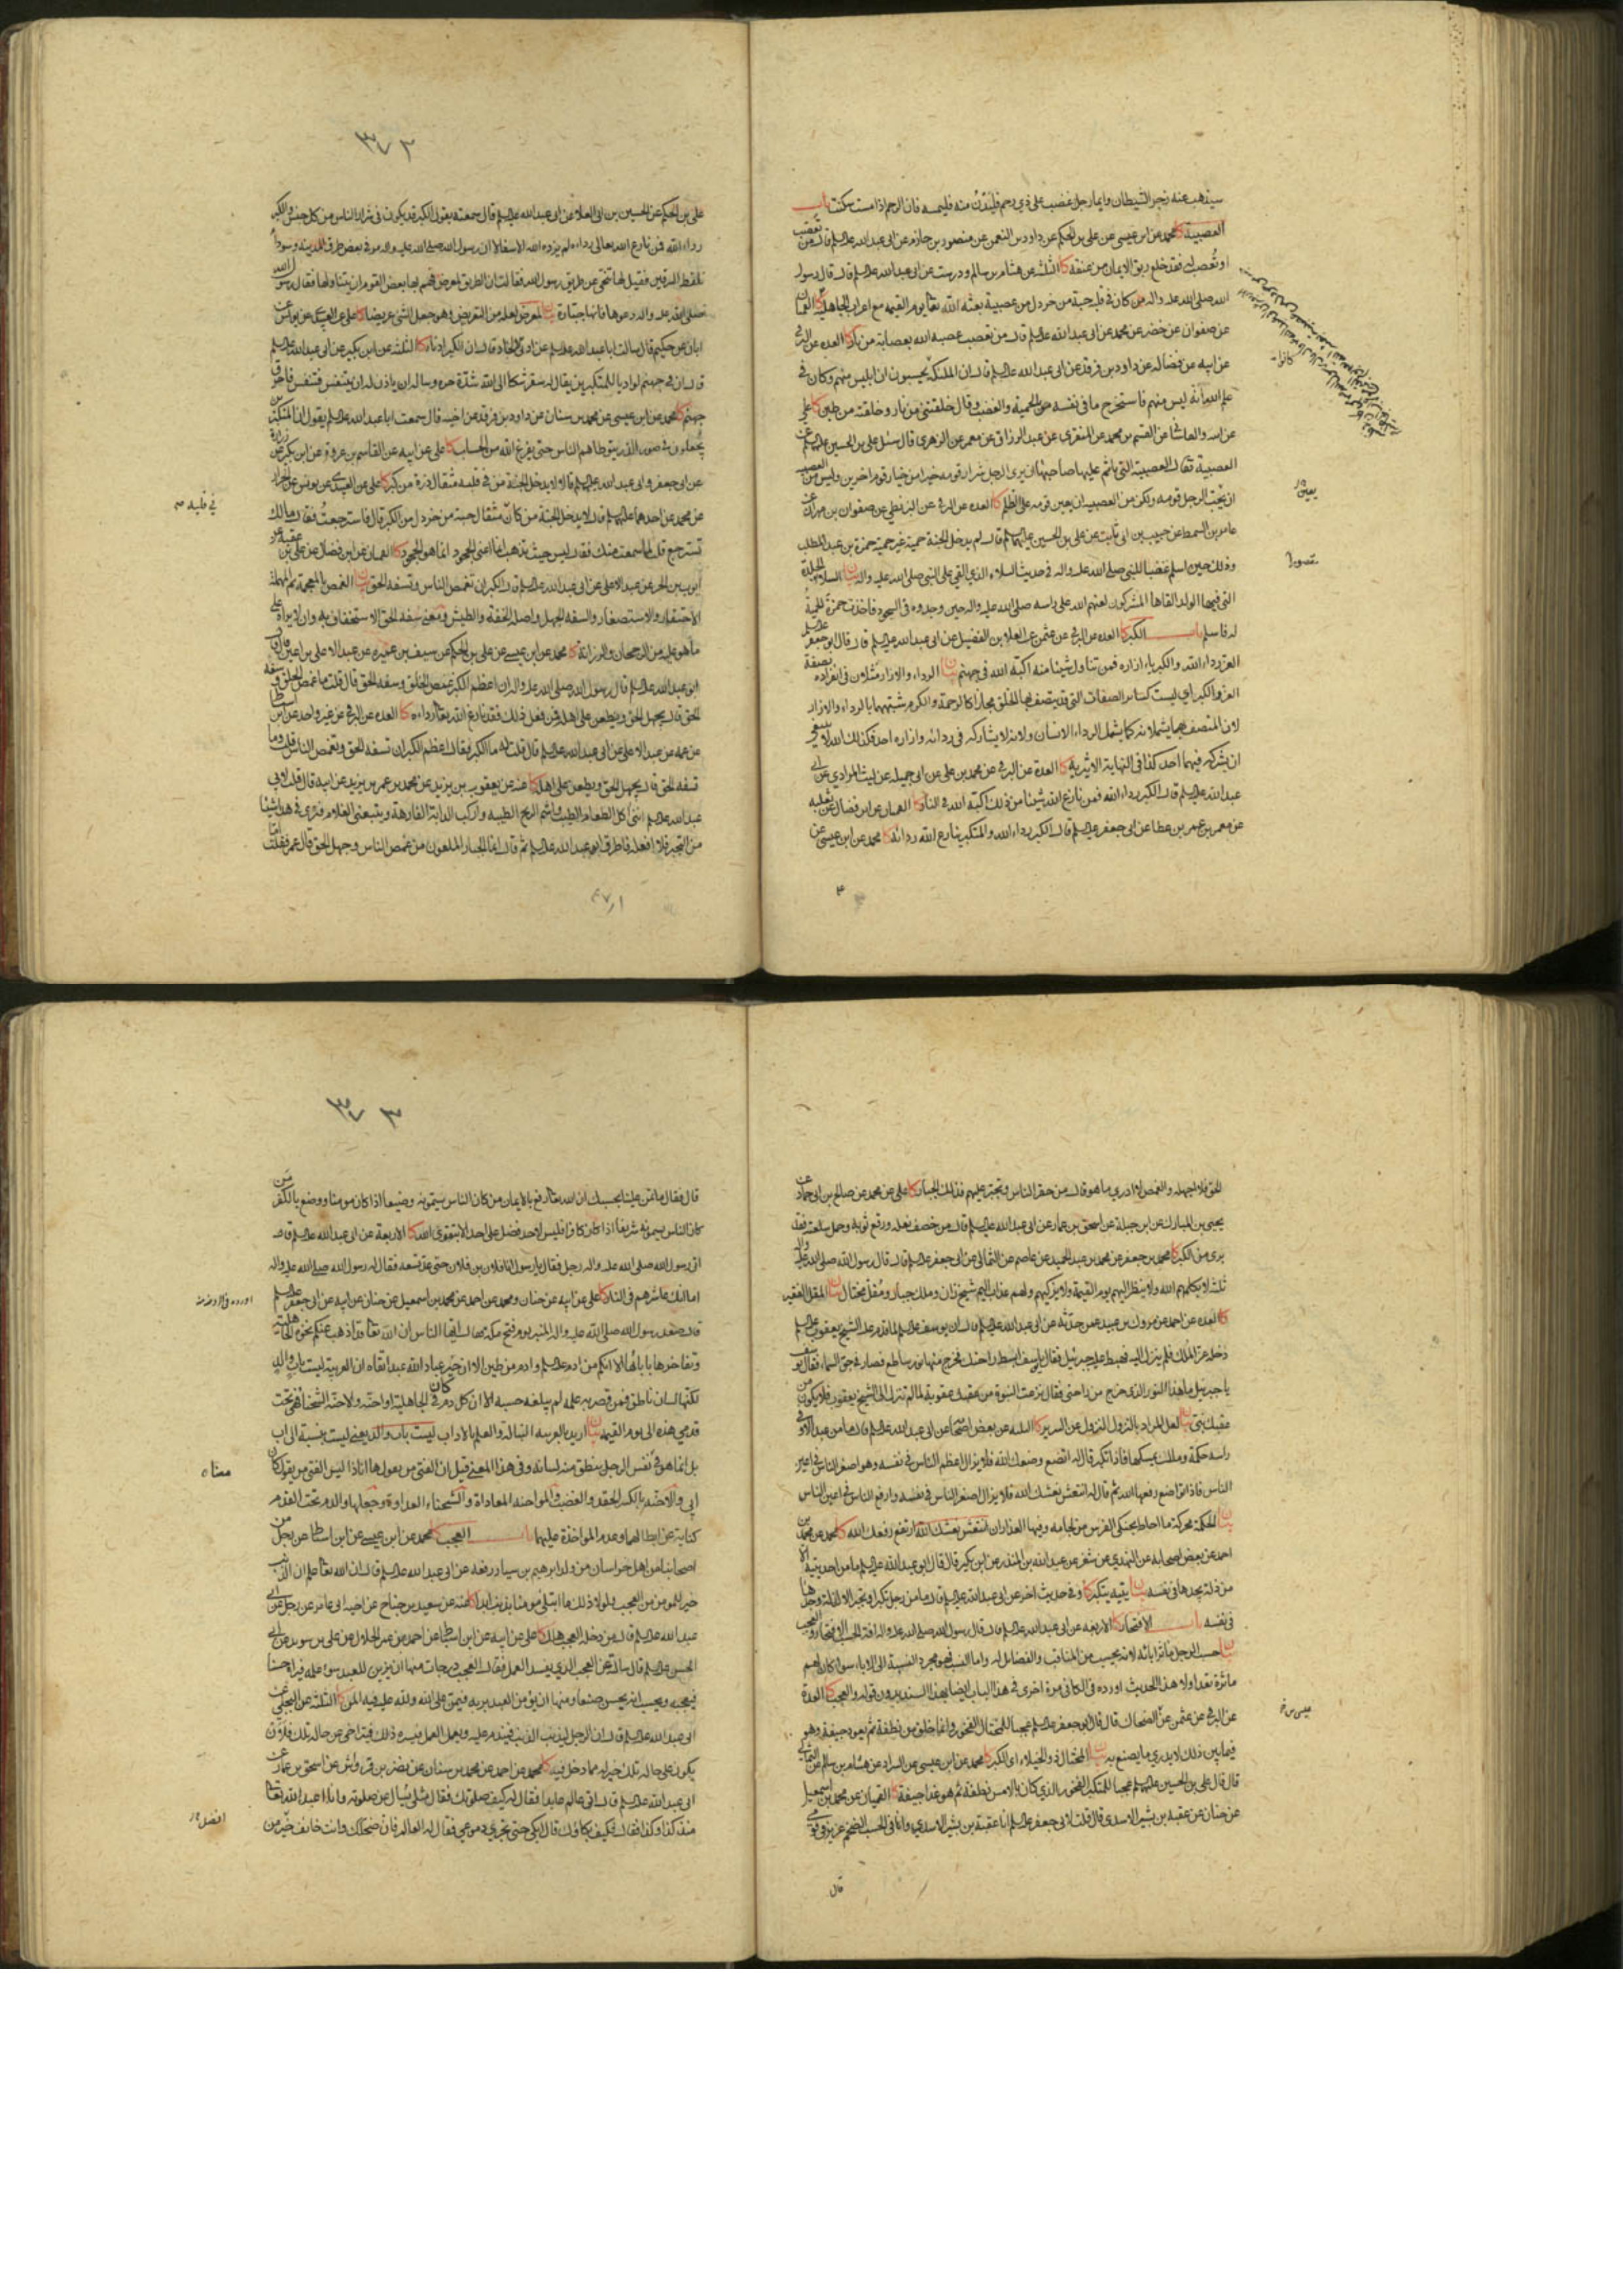 سيذهب عنه رجز الشيطان وايما رجل غضب على ذي رحم فليدن منه فليمسه فان الرحم اذا مست سكنت باب
العصبية كا محمد عن ابن عيسى عن علي بن الحكم عن داود بن النعمن عن منصور بن حازم عن ابي عبد الله عليه السلم قال من تعصب
او تعصب له فقد خلع ربق الايمان من عنقه كا الثلثة عن هشام بن سالم ودرست عن ابي عبد الله عليه السلم قال قال رسول
الله صلى الله عليه واله من كان في قلبه حبة من خردل من عصبية بعثه الله تعا يوم القيمة مع اعراب الجاهلية كا القميان
عن صفوان عن خضر عن محمد عن ابي عبد الله عليه السلم قال من تعصب عصبه الله بعصابة من نار كا العدة عن البرقي
عن ابيه عن فضالة عن داود بن فرقد عن ابي عبد الله عليه السلم قال ان الملئكة يحسبون ان ابليس منهم وكان في
علم الله انه ليس منهم فاستخرج ما في نفسه من الحمية والغضب وقال خلقتني من نار وخلقته من طين كا علي
عن ابيه والقاشاني عن القسم بن محمد عن المنقري عن عبد الرزاق عن معمر عن الزهري قال سئل علي بن الحسين عليهما السلم عن
العصبية فقال العصبية التي ياثم عليها صاحبها ان يرى الرجل شرار قومه خيرا من خيار قوم اخرين وليس من العصبية
ان يحب الرجل قومه ولكن من العصبية ان يعين قومه على الظلم كا العدة عن البرقي عن البزنطي عن صفوان بن مهران عن
عامر بن السمط عن حبيب بن ابي ثابت عن علي بن الحسين عليهما السلم قال لم يدخل الجنة حمية غير حمية حمزة بن عبد المطلب
وذلك حين اسلم غضبا للنبي صلى الله عليه واله في حديث السلاء الذي القي على النبي صلى الله عليه واله بيان السلاء الجلدة
التي فيها الولد القاها المشركون لعنهم الله على راسه صلى الله عليه واله حين وجدوه في السجود فاخذت حمزة الحمية
له فاسلم باب الكبر كا العدة عن البرقي عن عثمن عن العلا بن الفضيل عن ابي عبد الله عليه السلم قال قال ابو جعفر عليه السلم
العز رداء الله والكبرياء ازاره فمن تناول شيئا منه اكبه الله في جهنم بيان الرداء والازار مثلان في انفراده بصفة
العز والكبر اي ليست كسائر الصفات التي قد يتصف بها الخلق مجازا كالرحمة والكرم شبههما بالرداء والازار
لان المتصف بهما يشملانه كما يشمل الرداء الانسان ولانه لا يشاركه في ردائه وازاره احد فكذلك الله لا ينبغي
ان يشركه فيهما احد كذا في النهاية الاثيرية كا العدة عن البرقي عن محمد بن علي عن ابي جميلة عن ليث المرادي عن ابي
عبد الله عليه السلم قال الكبر رداء الله فمن نازع الله شيئا من ذلك اكبه الله في النار كا القميان عن ابن فضال عن ثعلبة
عن معمر بن عمر بن عطا عن ابي جعفر عليه السلم قال الكبر رداء الله والمتكبر ينازع الله رداءه كا محمد عن ابن عيسى عن
٣٧٢
علي بن الحكم عن الحسين بن ابي العلا عن ابي عبد الله عليه السلم قال سمعته يقول الكبر قد يكون في شرار الناس من كل جنس والكبر
رداء الله فمن نازع الله تعالى رداءه لم يزده الله الا سفالا ان رسول الله صلى الله عليه واله مر في بعض طرق المدينة وسوداء
تلقط السرقين فقيل لها تنحي عن طريق رسول الله فقالت ان الطريق لمعرض فهم بها بعض القوم ان يتناولها فقال رسول الله
صلى الله عليه واله دعوها فانها جبارة بيان لمعرض لعله من التعريض وهو جعل الشئ عريضا كا علي عن العبيدي عن يونس عن
ابان عن حكيم قال سالت ابا عبد الله عليه السلم عن ادنى الالحاد قال ان الكبر ادناه كا الثلثة عن ابن بكير عن ابي عبد الله عليه السلم
قال ان في جهنم لواديا للمتكبرين يقال له سقر شكا الى الله شدة حره وساله ان ياذن له ان يتنفس فتنفس فاحرق
جهنم كا محمد عن ابن عيسى عن محمد بن سنان عن داود بن فرقد عن اخيه قال سمعت ابا عبد الله عليه السلم يقول ان المتكبرين
يجعلون في صور الذر يتوطاهم الناس حتى يفرغ الله من الحساب كا علي عن ابيه عن القاسم بن عروة عن ابن بكير عن زرارة
عن ابي جعفر وابي عبد الله عليهما السلم قالا لا يدخل الجنة من في قلبه مثقال ذرة من كبر كا علي عن العبيدي عن يونس عن الخزاز
عن محمد عن احدهما عليهما السلم قال لا يدخل الجنة من كان مثقال حبة من خردل من الكبر قال فاسترجعت فقال ما لك
تسترجع قلت لما سمعت منك فقال ليس حيث تذهب انما اعني الجحود انما هو الجحود كا القميان عن ابن فضال عن علي بن عقبة عن
ايوب بن الحر عن عبد الاعلى عن ابي عبد الله عليه السلم قال الكبر ان تغمص الناس وتسفه الحق بيان الغمص بالمعجمة ثم المهملة
الاحتقار والاستصغار والسفه الجهل واصله الخفة والطيش ومعنى سفه الحق الاستخفاف به وان لا يراه على
ما هو عليه من الرجحان والرزانة كا محمد عن ابن عيسى عن علي بن الحكم عن سيف بن عميرة عن عبد الاعلى بن اعين قال قال
ابو عبد الله عليه السلم قال رسول الله صلى الله عليه واله ان اعظم الكبر غمص الخلق وسفه الحق قال قلت ما غمص الخلق وسفه
الحق قال يجهل الحق ويطعن على اهله فمن فعل ذلك فقد نازع الله تعا رداءه كا العدة عن البرقي عن غير واحد عن ابن اسباط
عن عمه عن عبد الاعلى عن ابي عبد الله عليه السلم قال قلت له ما الكبر فقال اعظم الكبر ان تسفه الحق وتغمص الناس قلت وما
تسفه الحق قال يجهل الحق ويطعن على اهله كا عنه عن يعقوب بن يزيد عن محمد بن عمر بن يزيد عن ابيه قال قلت لابي
عبد الله عليه السلم انني اكل الطعام الطيب واشم الريح الطيبة واركب الدابة الفارهة ويتبعني الغلام فترى في هذا شيئا
من التجبر فلا افعله فاطرق ابو عبد الله عليه السلم ثم قال انما الجبار الملعون من غمص الناس وجهل الحق قال عمر فقلت اما
في قلبه
الحق فلا اجهله والغمص لا ادري ما هو قال من حقر الناس وتجبر عليهم فذلك الجبار كا علي عن محمد عن صالح بن ابي حماد عن
يحيى بن المبارك عن ابن جبلة عن اسحق بن عمار عن ابي عبد الله عليه السلم قال من خصف نعله ورقع ثوبه وحمل سلعته فقد
برئ من الكبر كا محمد بن جعفر عن محمد بن عبد الحميد عن عاصم عن الثمالي عن ابي جعفر عليه السلم قال قال رسول الله صلى الله عليه واله
ثلثة لا يكلمهم الله ولا ينظر اليهم يوم القيمة ولا يزكيهم ولهم عذاب اليم شيخ زان وملك جبار ومقل مختال بيان المقل الفقير
كا العدة عن احمد عن مروك بن عبيد عمن حدثه عن ابي عبد الله عليه السلم قال ان يوسف عليه السلم لما قدم عليه الشيخ يعقوب عليه السلم
دخله عز الملك فلم ينزل اليه فهبط عليه جبرئيل فقال يا يوسف ابسط راحتك فخرج منها نور ساطع فصار في جو السماء فقال يوسف
يا جبرئيل ما هذا النور الذي خرج من راحتي فقال نزعت النبوة من عقبك عقوبة لما لم تنزل الى الشيخ يعقوب فلا يكون من
عقبك نبي بيان لعل المراد بالنزول النزول عن السرير كا الثلثة عن بعض اصحابنا عن ابي عبد الله عليه السلم قال ما من عبد الا وفي
راسه حكمة وملك يمسكها فاذا تكبر قال له اتضع وضعك الله فلا يزال اعظم الناس في نفسه وهو اصغر الناس في اعين
الناس فاذا تواضع رفعها الله ثم قال له انتعش نعشك الله فلا يزال اصغر الناس في نفسه وارفع الناس في اعين الناس
بيان الحكمة محركة ما احاط بحنكي الفرس من لجامه وفيها العذاران انتعش نعشك الله ارتفع رفعك الله كا محمد عن محمد بن
احمد عن بعض اصحابه عن النهدي عن شعر عن عبد الله بن المنذر عن ابن بكير قال قال ابو عبد الله عليه السلم ما من احد يتيه الا
من ذلة يجدها في نفسه بيان يتيه يتكبر كا وفي حديث اخر عن ابي عبد الله عليه السلم قال ما من رجل تكبر او تجبر الا لذلة وجدها
في نفسه باب الافتخار كا الاربعة عن ابي عبد الله عليه السلم قال قال رسول الله صلى الله عليه واله افة الحسب الافتخار والعجب
بيان حسب الرجل ماثر ابائه لانه يحسب من المناقب والفضائل له واما النسب فهو مجرد النسبة الى الاباء سواء كان لهم
ماثرة تعد او لا هذا الحديث اورده في الكافي مرة اخرى في هذا الباب ايضا بهذا السند بدون قوله والعجب كا العدة
عن البرقي عن عثمن عن الضحاك قال قال ابو جعفر عليه السلم عجبا للمختال الفخور وانما خلق من نطفة ثم يعود جيفة وهو
فيما بين ذلك لا يدري ما يصنع به بيان المختال ذو الخيلاء اي الكبر كا محمد عن ابن عيسى عن السراد عن هشام بن سالم عن الثمالي
قال قال علي بن الحسين عليهما السلم عجبا للمتكبر الفخور الذي كان بالامس نطفة ثم هو غدا جيفة كا القميان عن محمد بن اسمعيل
عن حنان عن عقبة بن بشير الاسدي قال قلت لابي جعفر عليه السلم انا عقبة بن بشير الاسدي وانا في الحسب الضخم عزيز في قومي
قال
٣٧٣
قال فقال ما تمن علينا بحسبك ان الله تعا رفع بالايمان من كان الناس يسمونه وضيعا اذا كان مومنا ووضع بالكفر من
كان الناس يسمونه شريفا اذا كان كافرا فليس لاحد فضل على احد الا بتقوى الله كا الاربعة عن ابي عبد الله عليه السلم قال
اتى رسول الله صلى الله عليه واله رجل فقال يا رسول الله انا فلان بن فلان حتى عد تسعة فقال له رسول الله صلى الله عليه واله
اما انك عاشرهم في النار كا علي عن ابيه عن حنان ومحمد عن احمد عن محمد بن اسمعيل عن حنان عن ابيه عن ابي جعفر عليه السلم
قال صعد رسول الله صلى الله عليه واله المنبر يوم فتح مكة فقال ايها الناس ان الله تعا قد اذهب عنكم نخوة الجاهلية
وتفاخرها بابائها الا انكم من ادم عليه السلم وادم من طين الا ان خير عباد الله عبد اتقاه ان العربية ليست باب والد
لكنها لسان ناطق فمن قصر به عمله لم يبلغه حسبه الا ان كل دم كان في الجاهلية او احنة والاحنة الشحناء فهي تحت
قدمي هذه الى يوم القيمة بيان اريد بالعربية النبالة والعلم بالاداب ليست باب والد يعني ليست بنسبة الى اب
بل انما هو في نفس الرجل ينطق منه لسانه وفي هذا المعنى قيل ان الفتى من يقول ها انا ذا ليس الفتى من يقول كان
ابي والاحنة بالكسر الحقد والغضب والمواحنة المعاداة والشحناء العداوة وجعلها والدم تحت القدم
كناية عن ابطالهما وعدم المواخذة عليهما باب العجب كا محمد عن ابن عيسى عن ابن اسباط عن رجل من
اصحابنا من اهل خراسان من ولد ابرهيم بن سيار رفعه عن ابي عبد الله عليه السلم قال ان الله تعا علم ان الذنب
خير للمومن من العجب ولولا ذلك ما ابتلي مومنا بذنب ابدا كا عنه عن سعيد بن جناح عن اخيه ابي عامر عن رجل عن ابي
عبد الله عليه السلم قال من دخله العجب هلك كا علي عن ابيه عن ابن اسباط عن احمد بن عمر الحلال عن علي بن سويد عن ابي
الحسن عليه السلم قال سالته عن العجب الذي يفسد العمل فقال العجب درجات منها ان يزين للعبد سوء عمله فيراه حسنا
فيعجبه ويحسب انه يحسن صنعا ومنها ان يؤمن العبد بربه فيمن على الله ولله عليه فيه المن كا الثلثة عن البجلي عن
ابي عبد الله عليه السلم قال ان الرجل ليذنب الذنب فيندم عليه ويعمل العمل فيسره ذلك فيتراخى عن حاله تلك فلان
يكون على حاله تلك خير له مما دخل فيه كا محمد عن احمد عن محمد بن سنان عن نضر بن قرواش عن اسحق بن عمار عن
ابي عبد الله عليه السلم قال اتى عالم عابدا فقال له كيف صلوتك فقال مثلي يسال عن صلوته وانا اعبد الله تعا
منذ كذا وكذا فقال فكيف بكاؤك قال ابكي حتى تجري دموعي فقال له العالم فان ضحكك وانت خائف خير من
معناه
افضل